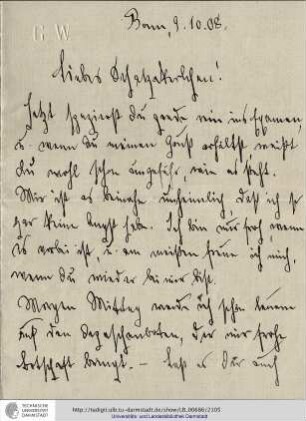 G W
Bonn, 9.10.08.
Liebes Schatzekerlchen!
Jetzt spazierst Du gerade ins Examen
u. wenn Du meinen Gruß erhältst weißt
Du wohl schon ungefähr, wie es steht.
Mir ist es beinahe unheimlich, daß ich so
gar keine Angst habe. Ich bin nur froh, wenn
es vorbei ist, u. am meisten freue ich mich,
wenn Du wieder bei mir bist.
Morgen Mittag werde ich schon lauern
auf den Depeschenboten, der mir frohe
Botschaft bringt. – Daß es Dir auch
TECHNISCHE
UNIVERSITÄT
DARMSTADT
http://tudigit.ulb.tu-darmstadt.de/show/
Universitäts- und Landesbibliothek Darmstadt